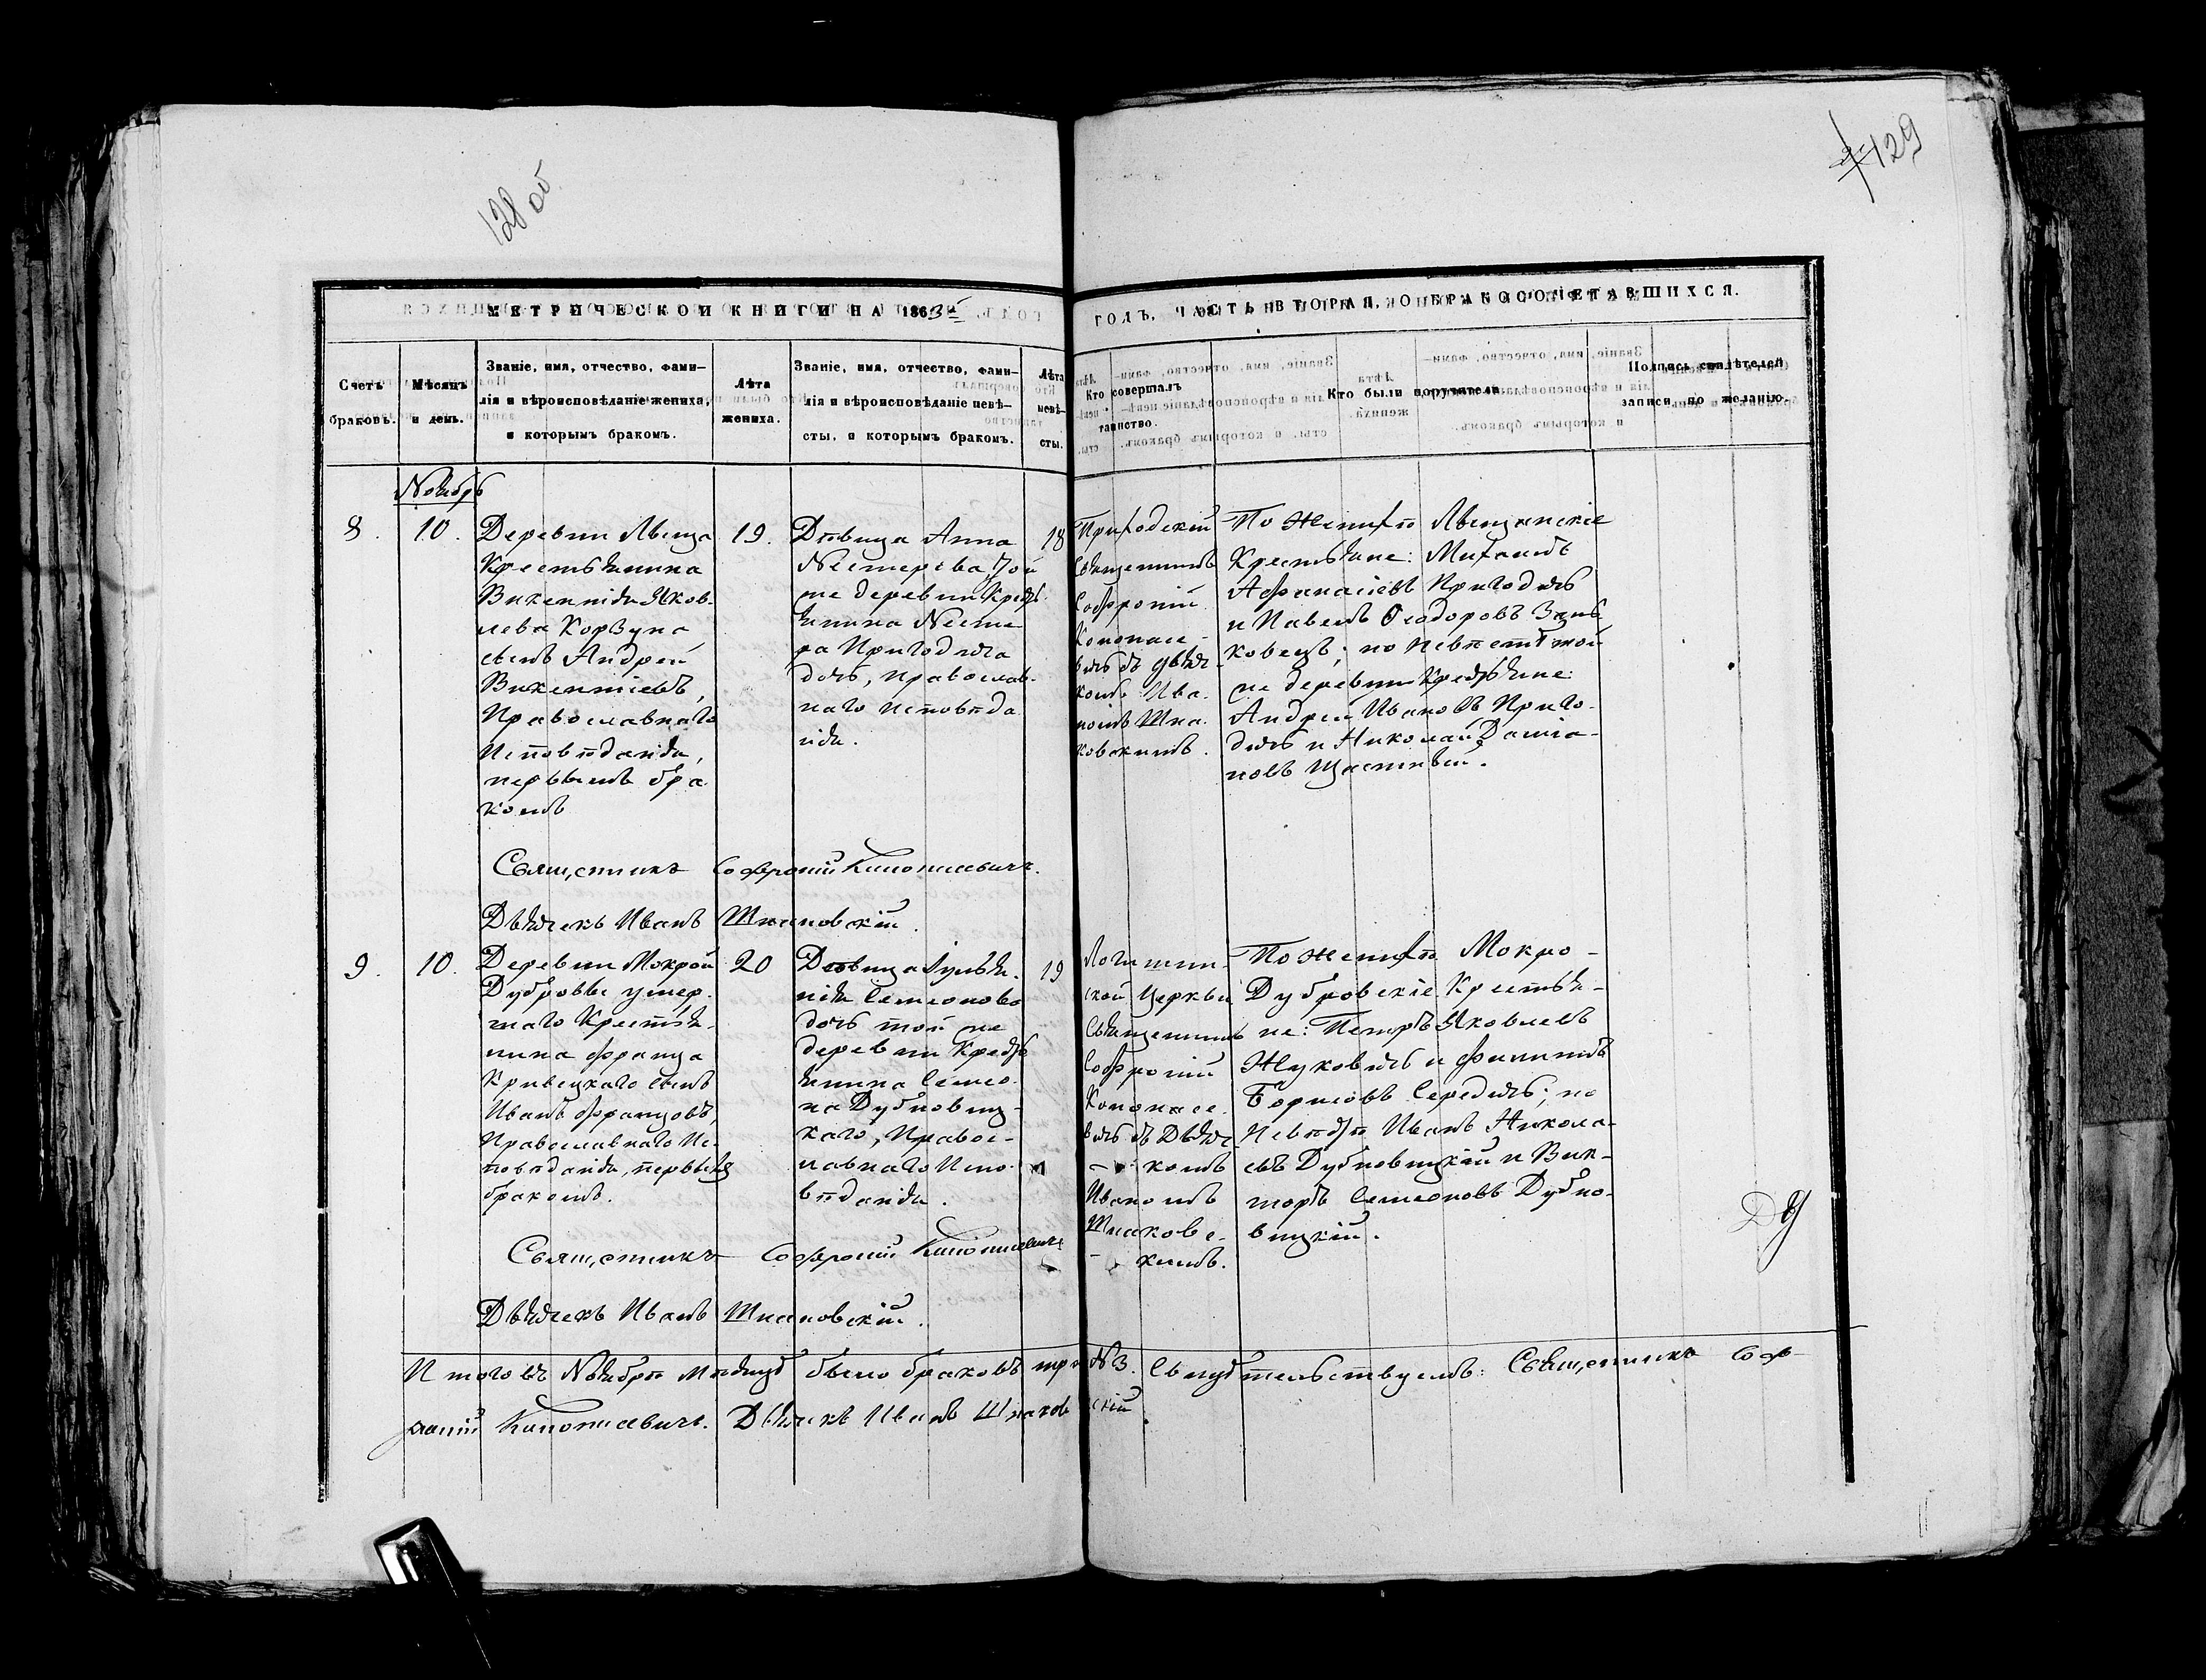 128 об
129
МЕТРИЧЕСКОЙ КНИГИ НА 1863й
ГОДЪ, ЧАСТЬ ВТОРАЯ, О БРАКОСОЧЕТАВШИХСЯ.
Счетъ браковъ.
Мѣсяцъ и день.
Званіе, имя, отчество, фами-
лія и вѣроисповѣданіе жениха,
и которымъ бракомъ.
Лѣта жениха.
Званіе, имя, отчество, фами-
лія и вѣроисповѣданіе невѣ-
сты, и которымъ бракомъ.
Лѣта невѣ-
сты.
Кто совершалъ
таинство.
Кто были поручители.
Подпись свидѣтелей
записи по желанію.
Ноябрь
8.
10.
Деревни Лыща
Крестьянина
Викентія Яков-
лева Корзуна
сынъ Андрей
Викентіевъ,
Православнаго
Исповѣданія,
первымъ бра
комъ
19.
Дѣвица Анна
Нестерова той
же деревни Крест
янина Несте
ра Пригодича
дочь, Православ-
наго Исповѣда
нія.
18
Приходскій
Священникъ
Софроній
Конопасе-
вичъ съ Дьяч-
комъ Ива-
номъ Шпа-
ковскимъ.
По Женихѣ Лыщинскіе
Крестьяне: Михаилъ
Афанасіевъ Пригодичъ
и Павелъ Ѳеодоровъ
ковецъ; по Невѣстѣ той
же деревни Крестьяне:
Андрей Ивановъ Приго-
дичъ и Николай Даміа-
новъ Щастный.
Священникъ Софроній Конопасевичъ.
Дьячекъ Иванъ Шпаковскій.
9.
10.
Деревни Мокрой
Дубровы умер-
шаго Крестья-
нина Франца
Кривецкаго сынъ
Иванъ Францовъ,
Православнаго Ис-
повѣданія, первымъ
бракомъ.
20
Дѣвица Іулья-
нія Семеонова
дочь той же
деревни Крестья
янина Семео-
на Дубновиц-
каго, Правос-
лавнаго Испо-
вѣданія.
19
Логишин-
ской Церкви
Священникъ
Софроній
Конопасе-
вичъ съ Дьяч-
комъ
Иваномъ
Шпаковс-
кимъ.
По Женихѣ Мокро-
Дубровскіе Крестья-
не: Петръ Яковлевъ
Жуковичъ и Филиппъ
Борисовъ Середичъ; по
Невѣстѣ Иванъ Никола-
евъ Дубновицкій и Вик-
торъ Семеоновъ Дубно-
вицкій.
Священникъ Софроній Конопасевичъ
Дьячекъ Иванъ Шпаковскій.
Итого въ Ноябрѣ мѣсяцѣ было браковъ три №3. Свидѣтельствуемъ: Священникъ Соф-
роній Конопасевичъ. Дьячекъ Иванъ Шпаковскій.